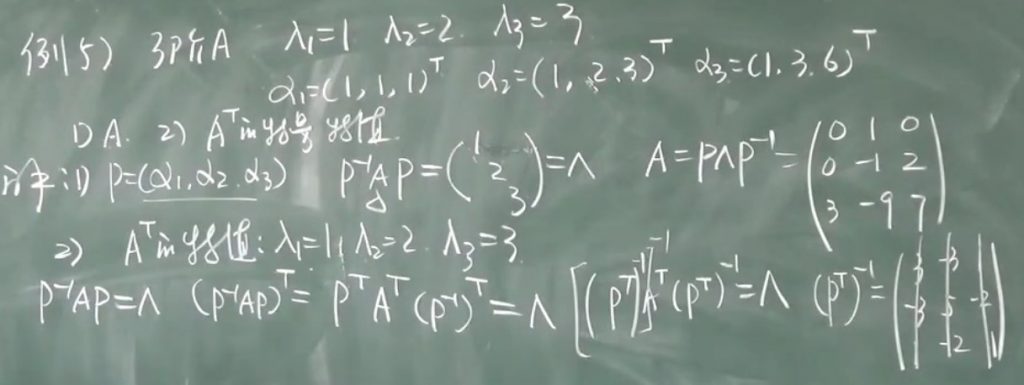 例(5) 3阶A λ₁=1 λ₂=2. λ₃=3
α₁=(1,1,1)ᵀ α₂=(1,2.3)ᵀ α₃=(1.3.6)ᵀ
1) A. 2) Aᵀ的特征量 特征值
解:1) P=(α₁,α₂.α₃) P⁻¹AP=(1 2 3)=Λ A=PΛP⁻¹=(0 1 0 0 -1 2 3 -9 7)
2) Aᵀ的特征值:λ₁=1, λ₂=2. λ₃=3.
P⁻¹AP=Λ (P⁻¹AP)ᵀ=PᵀAᵀ(P⁻¹)ᵀ=Λ [(Pᵀ)⁻¹]⁻¹Aᵀ(Pᵀ)⁻¹=Λ (Pᵀ)⁻¹=(3 -3 1 -3 5 -2 1 -2 1)